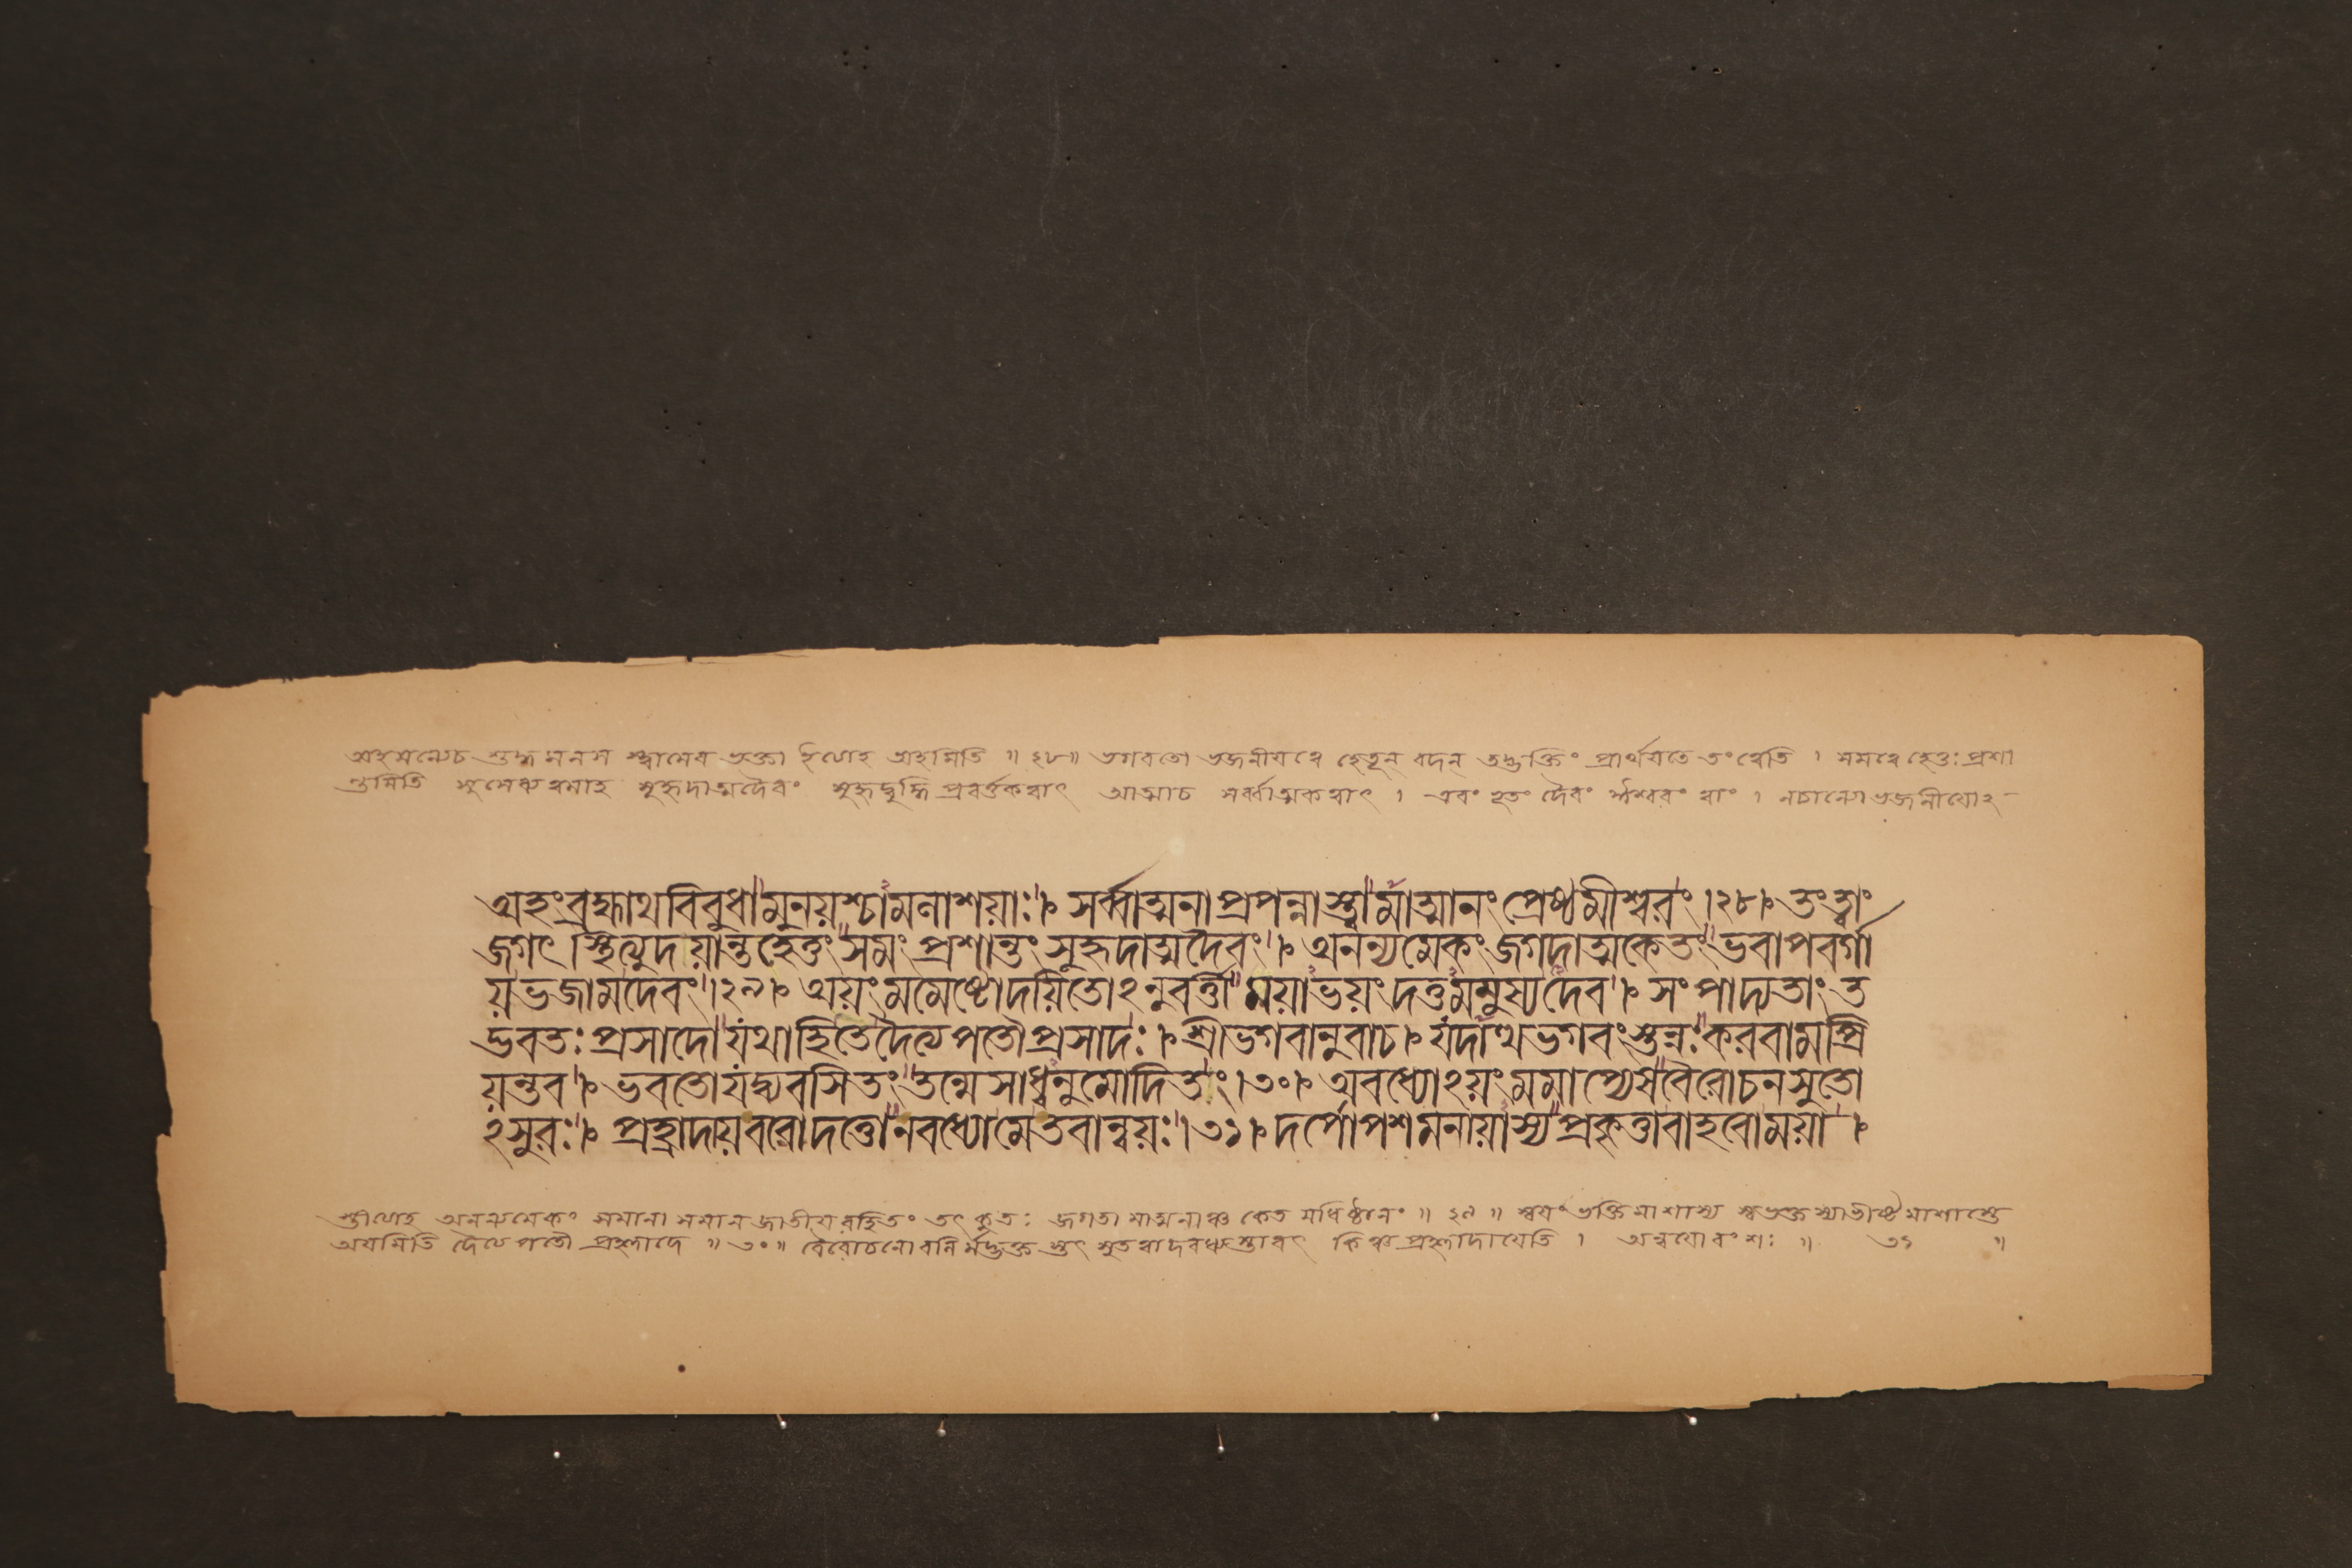 অহমন্যেচ শুদ্ধমনস স্ত্বামেব ভক্তা ইত্যাহ অহমিতি ॥ ২৮॥ ভগবতো ভজনীয়ত্বে হেতূন বদন্ তদ্ভক্তিং প্রার্থয়তে তংত্বেতি । সমত্বে হেতুঃ প্রশা
ন্তমিতি সুসেব্যত্বমাহ সুহৃদাত্মদৈবং সুহৃদ্বুদ্ধি প্রবর্ত্তকত্বাৎ আত্মাচ সর্ব্বাত্মকত্বাৎ । এবং ভূতং দৈবং ঈশ্বরং ত্বাং । নচান্যোভজনীয়োঽ-
অহংব্রহ্মাথবিবুধামুনয়শ্চামলাশয়াঃ। সর্ব্বাত্মনাপ্রপন্নাস্ত্বামাত্মানংপ্রেষ্ঠমীশ্বরং।২৮। তংত্বাং
জগৎস্থিত্যুদয়ান্তহেতুংসমংপ্রশান্তংসুহৃদাত্মদৈবং। অনন্যমেকংজগদাত্মকেতংভবাপবর্গা
য়ভজামদেবং।২৯। অয়ংমমেষ্টোদয়িতোঽনুবর্ত্তীময়াভয়ংদত্তমমুষ্যদেব। সংপাদ্যতাংত
দ্ভবতঃপ্রসাদোযথাহিতেদৈত্যপতৌপ্রসাদঃ। শ্রীভগবানুবাচ। যদাত্থভগবংস্তন্নঃকরবামপ্রি
য়ন্তব। ভবতোযদ্ব্যবসিতংতন্মেসাধ্বনুমোদিতং।৩০। অবধ্যোঽয়ংমমাপ্যেষবৈরোচনসুতো
ঽসুরঃ। প্রহ্রাদায়বরোদত্তোনবধ্যোমেতবান্বয়ঃ।৩১। দর্পোপশমনায়াস্যপ্রবৃক্তাবাহবোময়া।
স্তীত্যাহ অনন্যমেকং সমানা সমানজাতীয়রহিতং তৎ কুতঃ জগতা মাত্মনাঞ্চ কেত মধিষ্ঠানং ॥ ২৯ ॥ স্বয়ং ভক্তিমাশাস্য স্বভক্তস্যাভীষ্টমাশাস্তে
অয়মিতি দৈত্যপতৌ প্রহ্লাদে ॥ ৩০॥ বৈরোচনোবলির্মদ্ভক্ত স্তৎ সুতত্বাদবধ্যস্তাবৎ কিঞ্চ প্রহ্লাদায়েতি । অন্বয়োবংশঃ ॥ ৩১ ॥